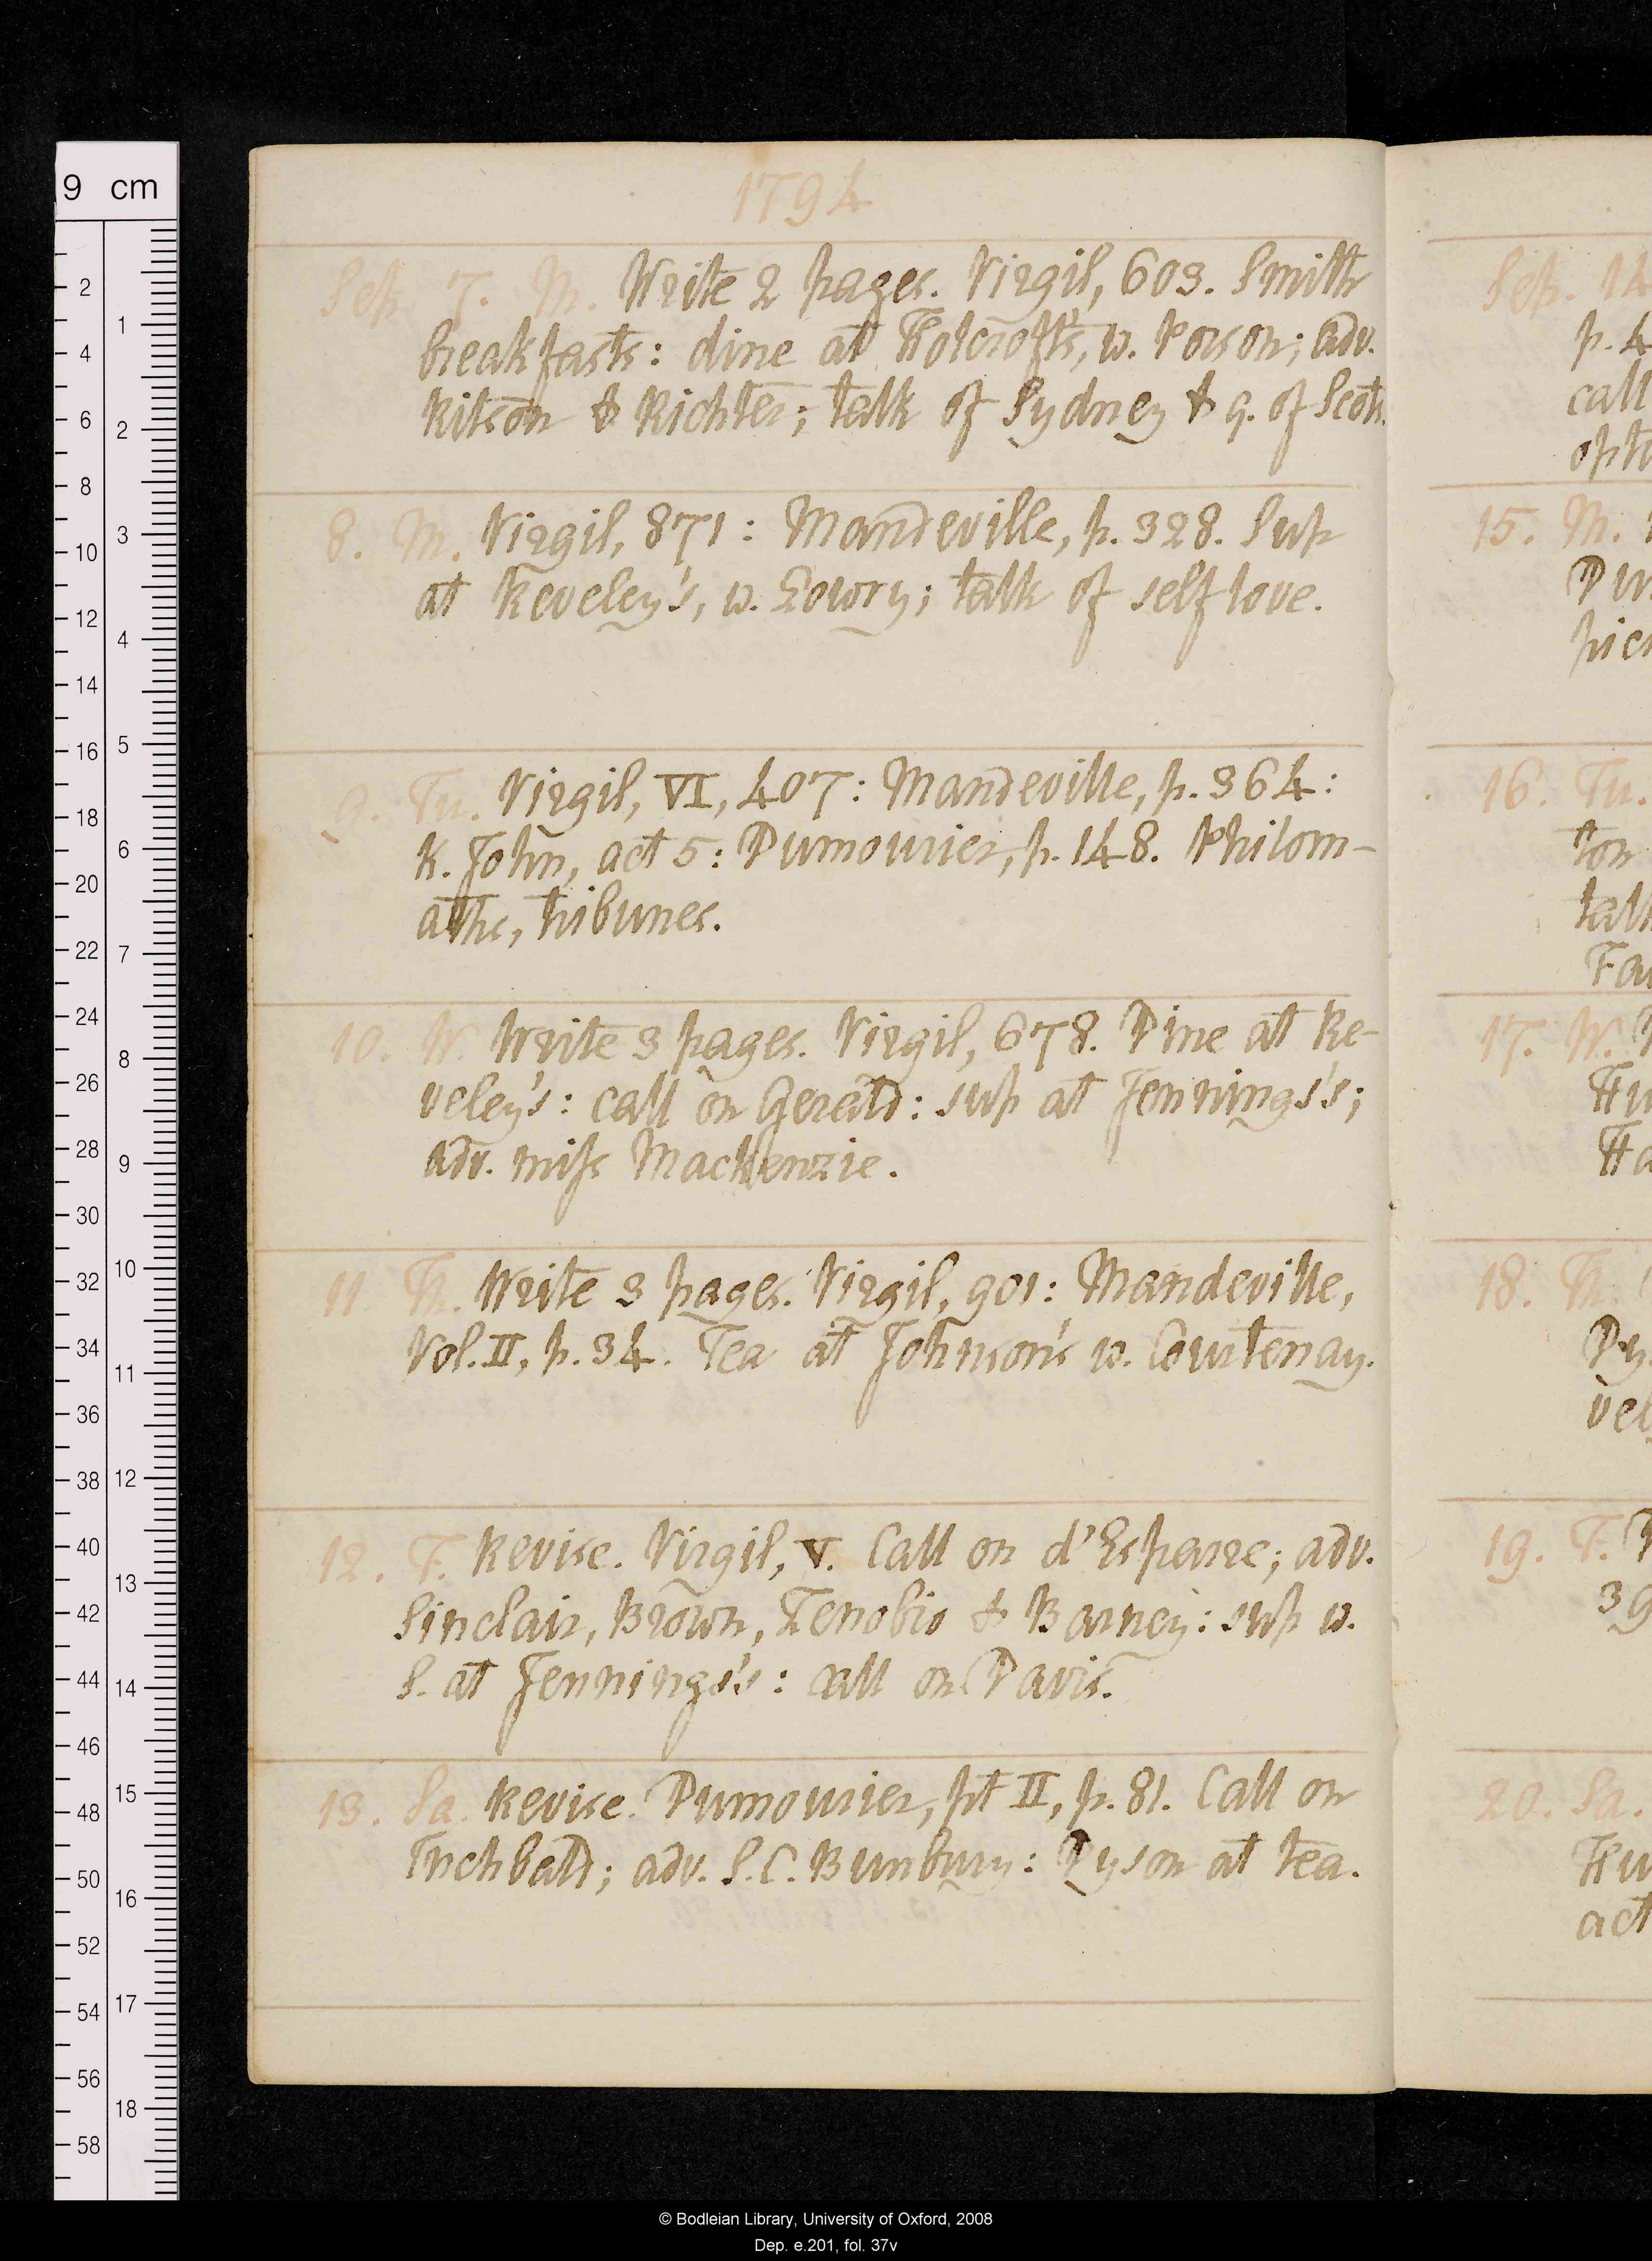 1794
Sep. 7. M. Write 2 pages. Virgil, 603. Smith
breakfasts: dine at Holcroft's, w. Porson; adv.
Ritson & Richter; talk of Sydney & q. of Scots.
8. M. Virgil, 871: Mandeville, p. 328. Sup
at Reveley's, w. Lowry; talk of self love.
9. Tu. Virgil, VI, 407: Mandeville, p. 364:
K. John, act 5: Dumourier, p. 148. Philom-
aths, tribunes.
10. W. Write 3 pages. Virgil, 678. Dine at Re-
veley's: call on Gerald: sup at Jennings's;
adv. miss Mackenzie.
11. Th. Write 3 pages. Virgil, 901: Mandeville,
Vol. II, p. 34. Tea at Johnson's w. Courtenay.
12. F. Revise. Virgil, V. Call on d'Esparre; adv.
Sinclair, Brown, Zenobio & Barney: sup w.
S. at Jennings's: call on Davis.
13. Sa. Revise. Dumourier, pt II, p. 81. Call on
Inchbald; adv. S. C. Bunbury: Dyson at tea.
Sep. 14
p. 4
call
15. M.
16. Tu.
17. W.
18. Th.
19. F.
20. Sa.
act
9 cm
2 4 6 8 10 12 14 16 18 20 22 24 26 28 30 32 34 36 38 40 42 44 46 48 50 52 54 56 58
1 2 3 4 5 6 7 8 9 10 11 12 13 14 15 16 17 18
© Bodleian Library, University of Oxford, 2008
Dep. e.201, fol. 37v